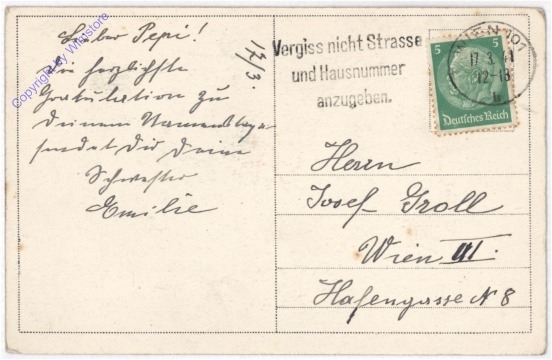 Lieber Pepi!
17/3.
Die herzlichste
Gratulation zu
Deinem Namenstage
sendet Dir Deine
Schwester
Emilie
Copyright by Whitstore
Vergiss nicht Strasse
und Hausnummer
anzugeben.
WIEN 101
17.3. 12-13
b
5 5
Deutsches Reich
Herrn
Josef Groll
Wien III.
Hafengasse N 8